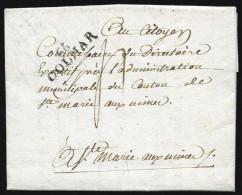 Au Citoyen
66
COLMAR
Commissaire du Directoire
Executif près l'administration
municipale du Canton de
Ste marie aux mines
a Ste Marie aux mines